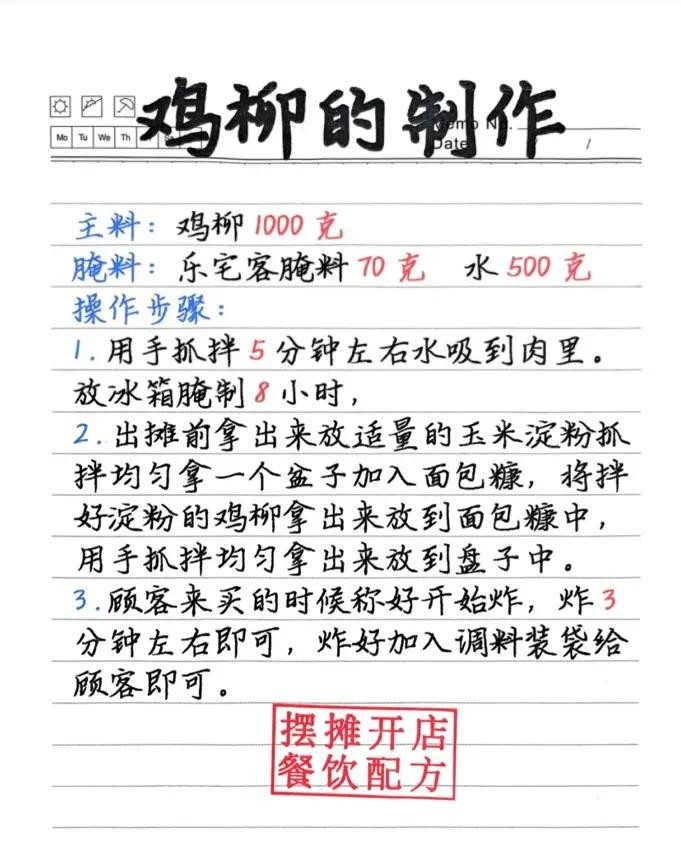 鸡柳的制作
Memo No.
Mo Tu We Th
Date / /
主料：鸡柳1000克
腌料：乐宅客腌料70克 水500克
操作步骤：
1.用手抓拌5分钟左右水吸到肉里。
放冰箱腌制8小时，
2.出摊前拿出来放适量的玉米淀粉抓
拌均匀拿一个盆子加入面包糠，将拌
好淀粉的鸡柳拿出来放到面包糠中，
用手抓拌均匀拿出来放到盘子中。
3.顾客来买的时候称好开始炸，炸3
分钟左右即可，炸好加入调料装袋给
顾客即可。
摆摊开店
餐饮配方